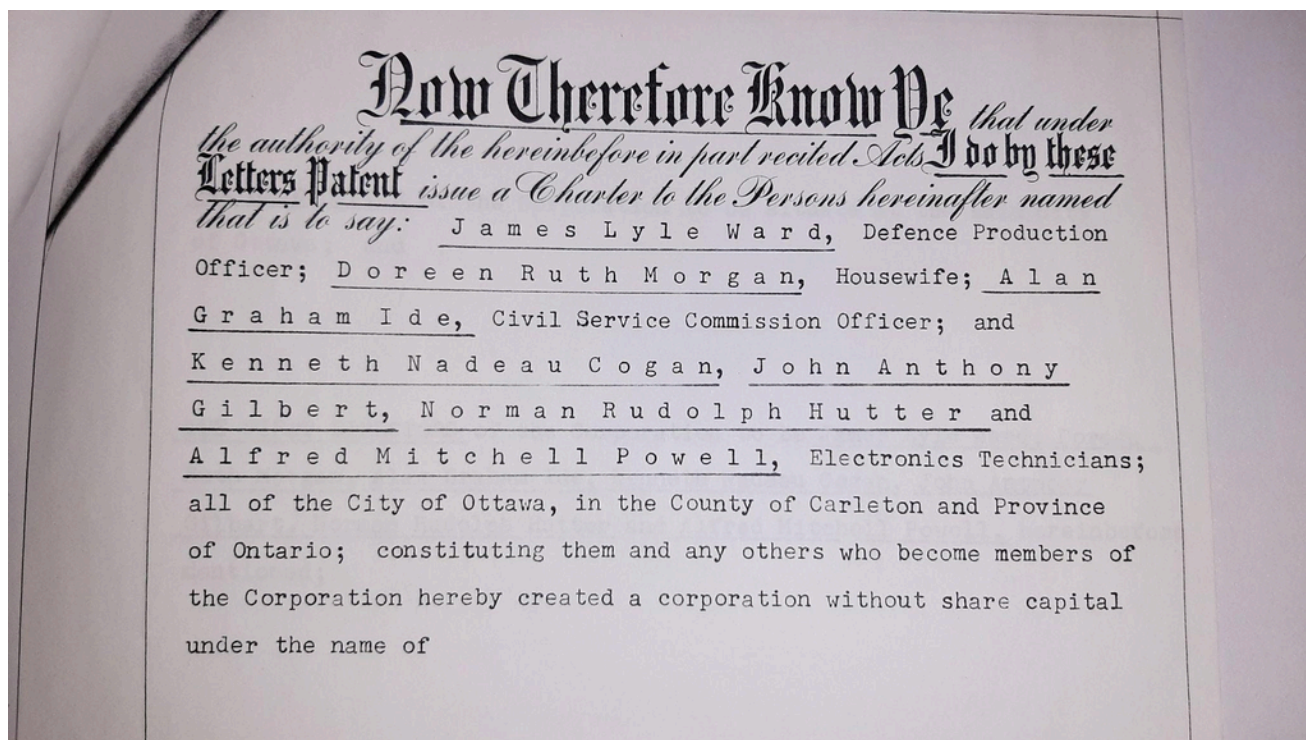 Now Therefore Know Ye that under
the authority of the hereinbefore in part recited Acts I do by these
Letters Patent issue a Charter to the Persons hereinafter named
that is to say: James Lyle Ward, Defence Production
Officer; Doreen Ruth Morgan, Housewife; Alan
Graham Ide, Civil Service Commission Officer; and
Kenneth Nadeau Cogan, John Anthony
Gilbert, Norman Rudolph Hutter and
Alfred Mitchell Powell, Electronics Technicians;
all of the City of Ottawa, in the County of Carleton and Province
of Ontario; constituting them and any others who become members of
the Corporation hereby created a corporation without share capital
under the name of